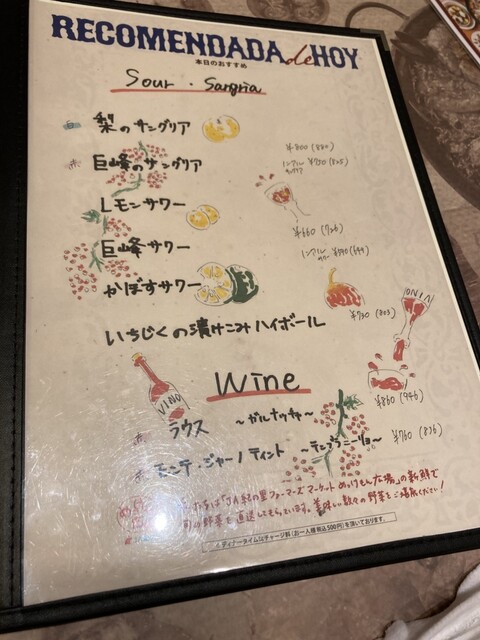 RECOMENDADA de HOY
本日のおすすめ
Sour・Sangria
白 梨のサングリア
赤 巨峰のサングリア
¥800(880)
ノンアル ¥750(825)
レモンサワー
¥660(726)
巨峰サワー
ノンアル
かぼすサワー
¥730(803)
いちじくの漬けこみハイボール
VINO
VINO
Wine
¥860(946)
赤 ラウス ~ガルナッチャ~
¥760(836)
赤 モンテ・ジャーノ ティント ~テンプラニーリョ~
「JA紀の里ファーマーズマーケット めっけもん広場」の新鮮で
野菜を直送してもらっています。美味しい数々の野菜をご堪能ください!
ディナータイムはチャージ料(お一人様税込500円)を頂いております。